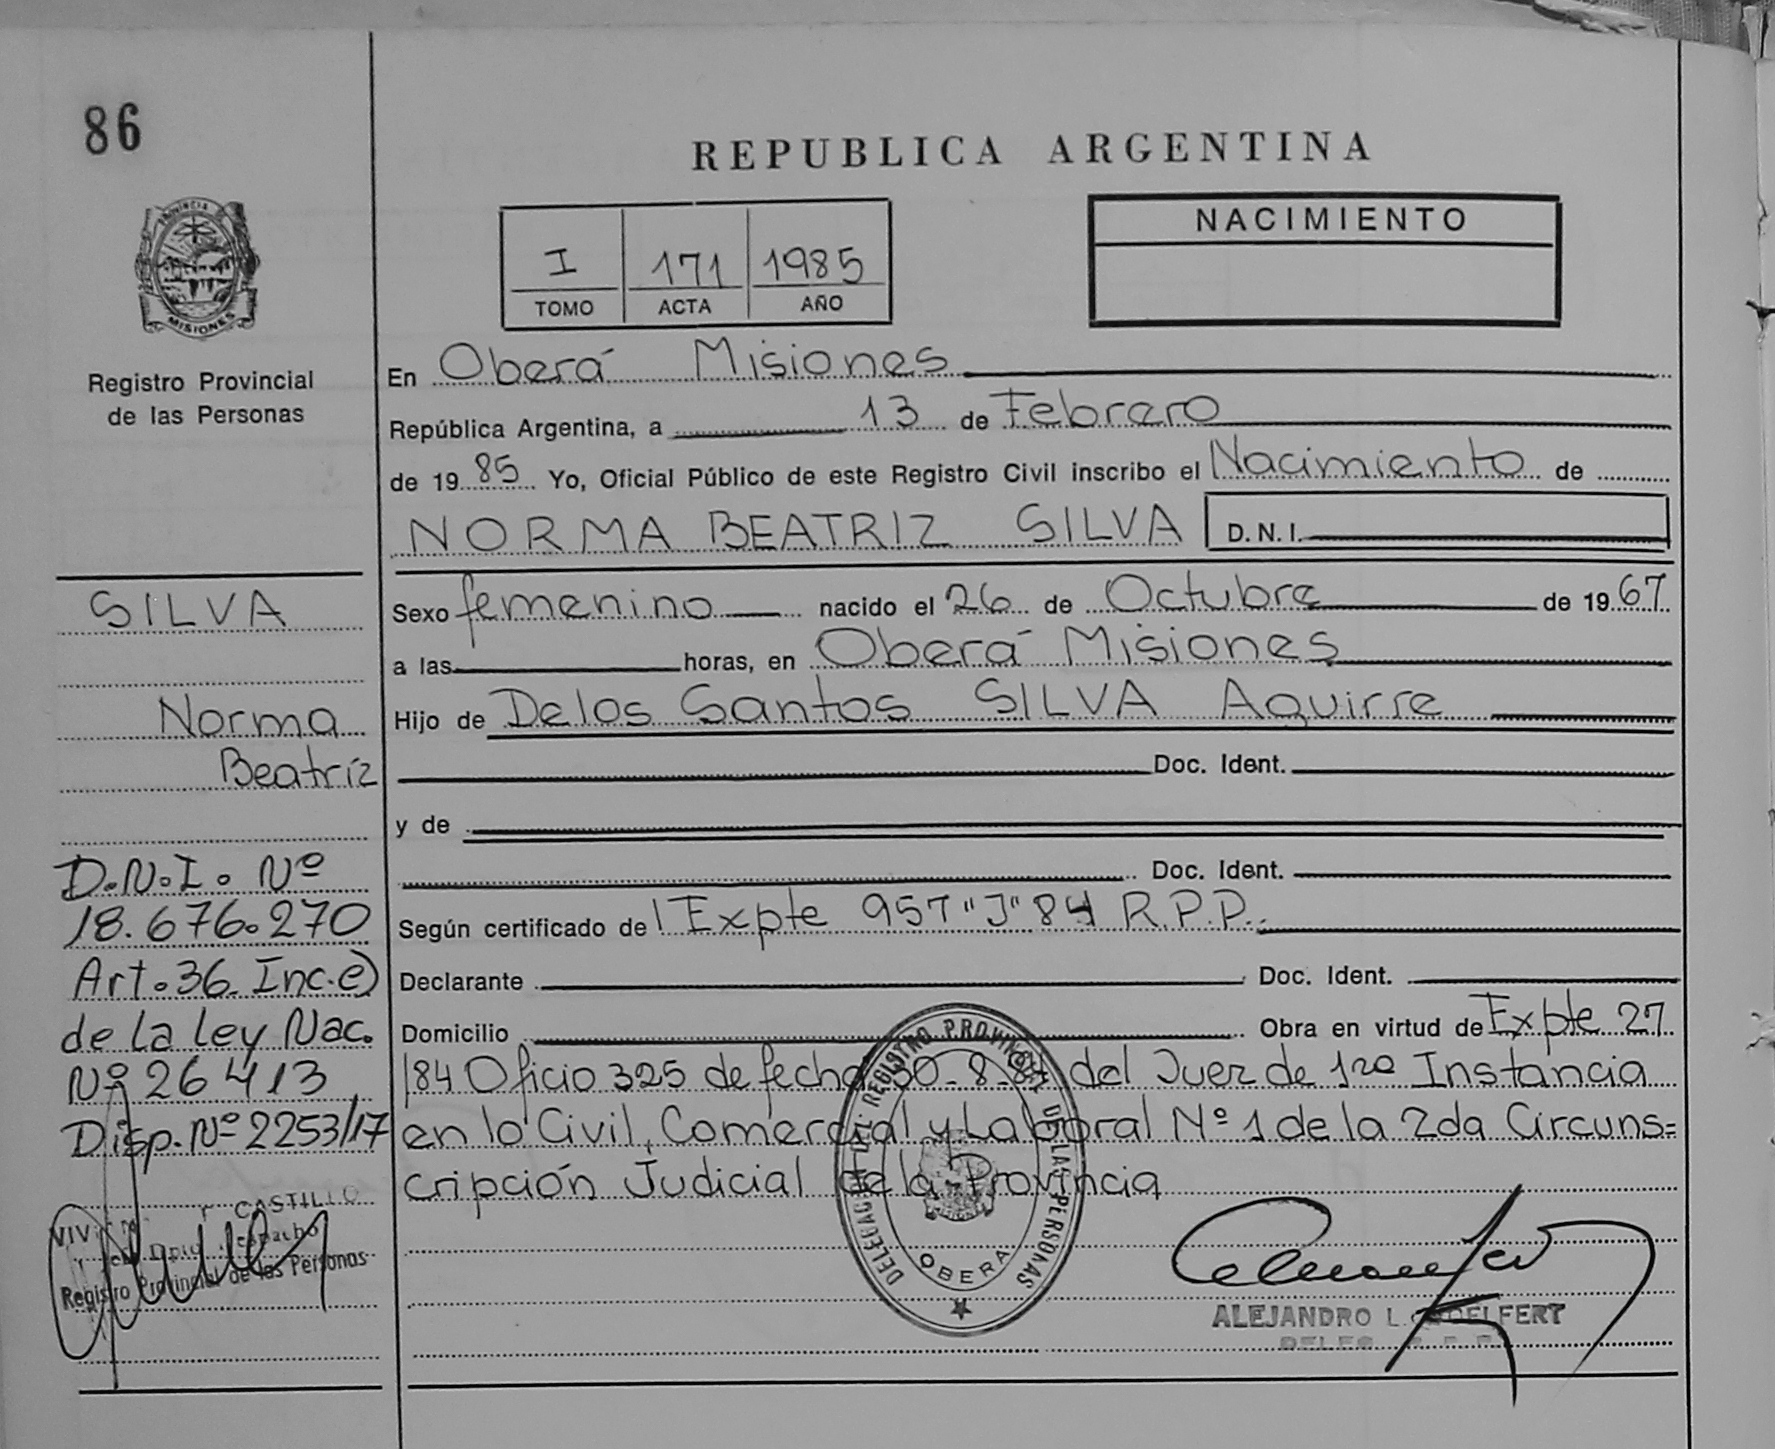 86
REPUBLICA ARGENTINA
PROVINCIA DE
MISIONES
Registro Provincial
de las Personas
I 171 1985
TOMO ACTA AÑO
NACIMIENTO
En Oberá Misiones
República Argentina, a 13 de Febrero
de 19 85 Yo, Oficial Público de este Registro Civil inscribo el Nacimiento de
NORMA BEATRIZ SILVA D.N.I.
Sexo femenino nacido el 26 de Octubre de 19 67
a las horas, en Oberá Misiones
Hijo de Delos Santos SILVA Aguirre
Doc. Ident.
y de
Doc. Ident.
Según certificado de Expte 957 "J" 84 R.P.P.
Declarante Doc. Ident.
Domicilio Obra en virtud de Expte 27
/84 Oficio 325 de fecha 30-8-84 del Juez de 1ra Instancia
en lo Civil, Comercial y Laboral Nº 1 de la 2da Circuns=
cripción Judicial de la Provincia
SILVA
Norma
Beatríz
D.N.I. Nº
18.676.270
Art. 36 Inc. e)
de la ley Nac.
Nº 26413
Disp. Nº 2253/17
CASTILLO
Registro Provincial de las Personas
DELEGACION DEL REGISTRO PROVINCIAL DE LAS PERSONAS
OBERA
ALEJANDRO L.